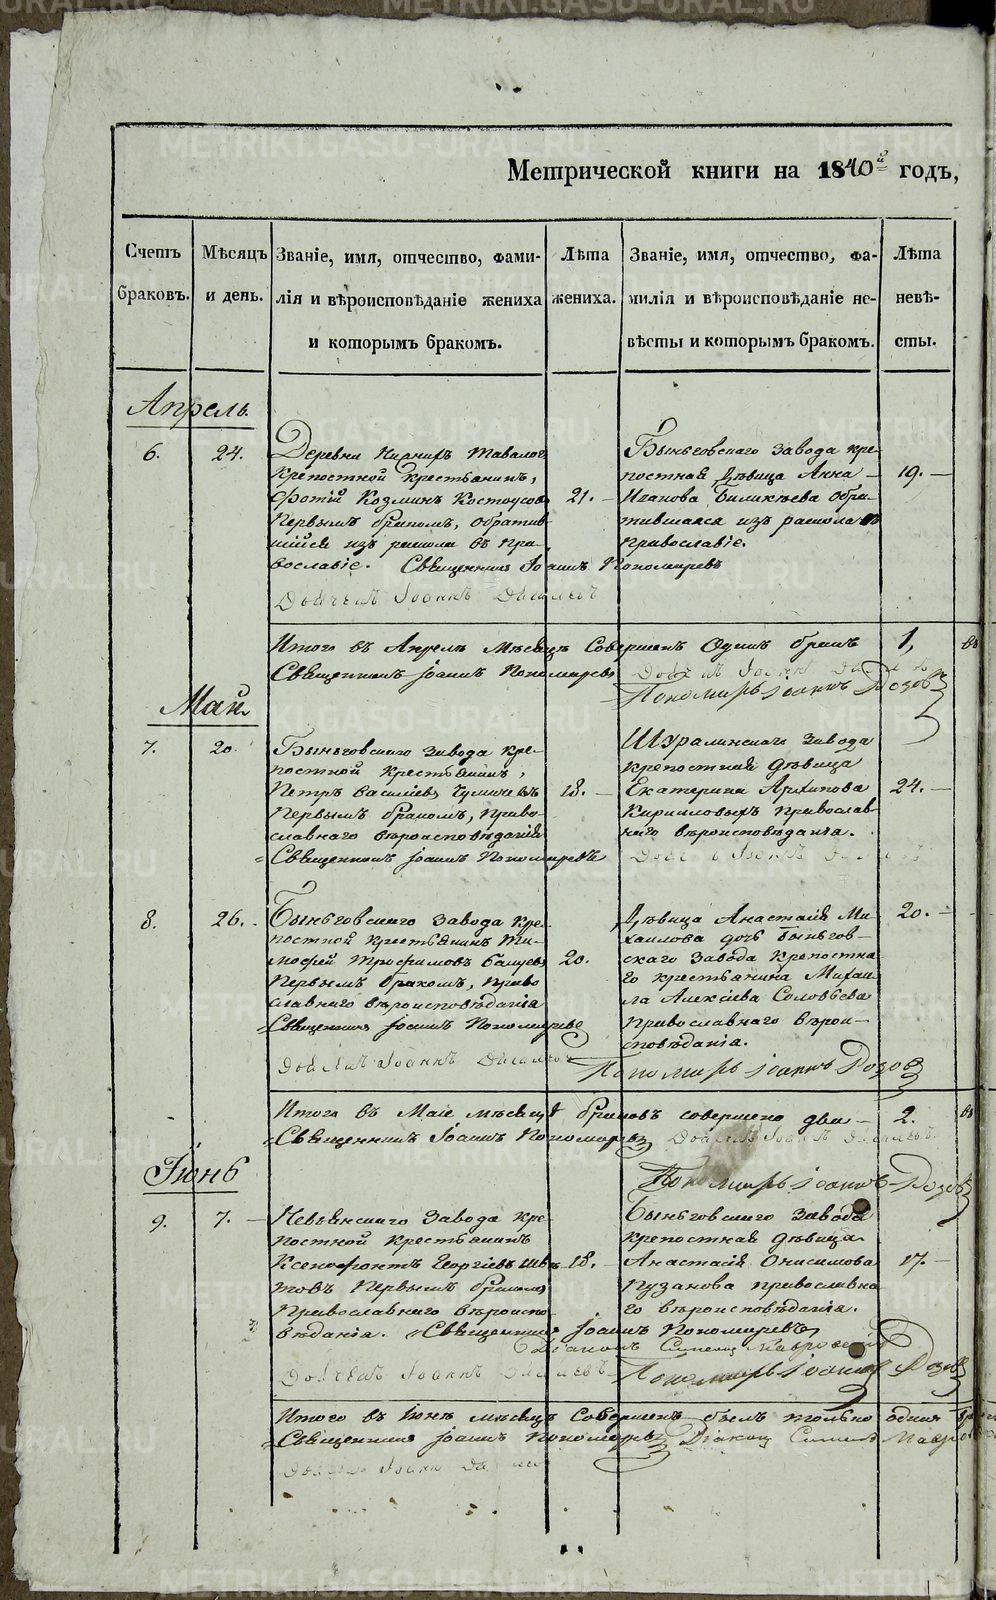 Метрической книги на 1840й годъ,
Счетъ браковъ.
Мѣсяцъ и день.
Званіе, имя, отчество, фами-
лія и вѣроисповѣданіе жениха
и которымъ бракомъ.
Лѣта жениха.
Званіе, имя, отчество, фа-
милія и вѣроисповѣданіе не-
вѣсты и которымъ бракомъ.
Лѣта невѣ-
сты.
Апрель.
6.
24.
Деревни Таволог
крепостной крестьянинъ,
Фотій Козминъ Костоусовъ
Первымъ бракомъ, обратив
шійся изъ раскола въ пра-
вославіе. Священникъ Іоаннъ Пономаревъ
21.
Быньговскаго завода кре-
постная дѣвица Анна
Иванова обра-
тившаяся изъ раскола въ
Православіе.
19.
Дьячекъ Іоаннъ
Итого въ Апрелѣ мѣсяцѣ совершенъ одинъ бракъ 1,
Священникъ Іоаннъ Пономаревъ
Пономарь Іоаннъ Розовъ
Май.
7.
20.
Быньговскаго завода кре-
постной крестьянинъ,
Петръ Васильевъ
Первымъ бракомъ, право-
славнаго вѣроисповѣданія
Священникъ Іоаннъ Пономаревъ
18.
Шуралинскаго завода
крепостная дѣвица
Екатерина Архипова
Кирилловыхъ православ-
наго вѣроисповѣданія.
24.
8.
26.
Быньговскаго завода кре-
постной крестьянинъ Ти-
мофей Трофимовъ
Первымъ бракомъ, право
славнаго вѣроисповѣданія
Священникъ Іоаннъ Пономаревъ
20.
Дѣвица Анастасія Ми-
хаилова дочь Быньгов-
скаго завода крепостна-
го крестьянина Михаи-
ла Алексіева Соловьева
православнаго вѣрои-
сповѣданія.
20.
Дьячекъ Іоаннъ
Пономарь Іоаннъ Розовъ
Итого въ Маіе мѣсяцѣ браковъ совершено два 2.
Священникъ Іоаннъ Пономаревъ Дьячекъ Іоаннъ
Пономарь Іоаннъ Розовъ
Іюнь
9.
7.
Невьянскаго завода кре-
постной крестьянинъ
Ксенофонтъ Георгіевъ
Первымъ бракомъ
Православнаго вѣроиспо-
вѣданія. Священникъ Іоаннъ Пономаревъ
18.
Быньговскаго завода
крепостная дѣвица
Анастасія Онисимова
Пузанова православна
го вѣроисповѣданія.
17.
Діаконъ
Дьячекъ Іоаннъ
Пономарь Іоаннъ Розовъ
Итого въ Іюнѣ мѣсяцѣ совершенъ былъ только одинъ
Священникъ Іоаннъ Пономаревъ Діаконъ
METRIKI.GASO-URAL.RU